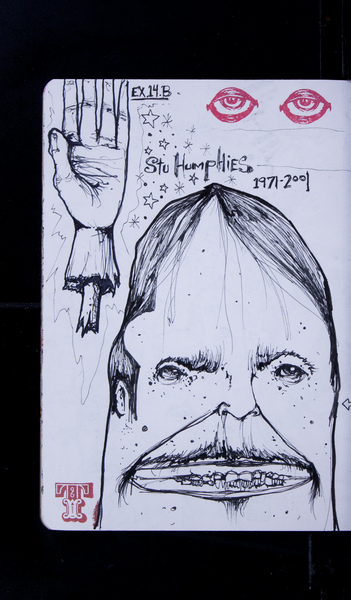 EX.14.B
Stu HumpHiES
1971-2001